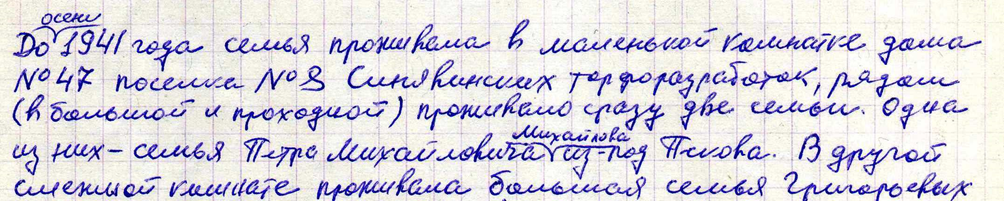 До осени 1941 года семья проживала в маленькой комнатке дома
№ 47 поселка № 8 Синявинских торфоразработок, рядом
(в большой и проходной) проживало сразу две семьи. Одна
из них - семья Петра Михайловича Михайлова из-под Пскова. В другой
смежной комнате проживала большая семья Григорьевых